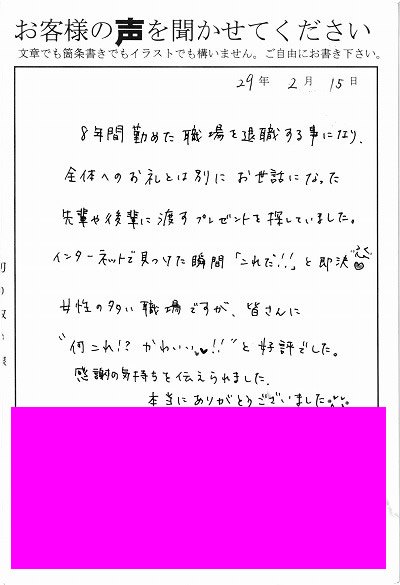 お客様の声を聞かせてください
文章でも箇条書きでもイラストでも構いません。ご自由にお書き下さい。
29年 2月 15日
8年間勤めた職場を退職する事になり、
全体へのお礼とは別にお世話になった
先輩や後輩に渡すプレゼントを探していました。
インターネットで見つけた瞬間「これだ!!」と即決
女性の多い職場ですが、皆さんに
"何これ!? かわいい♥♥!!"と好評でした。
感謝の気持ちを伝えられました。
本当にありがとうございました